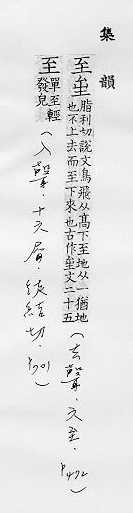 集韻
至
脂利切說文鳥飛从高下至地从一猶地
也不上去而至下來也古作文二十五
(去聲.六至.P472)
至
單至輕
發皃
(入聲.十六屑.徒結切.P701)